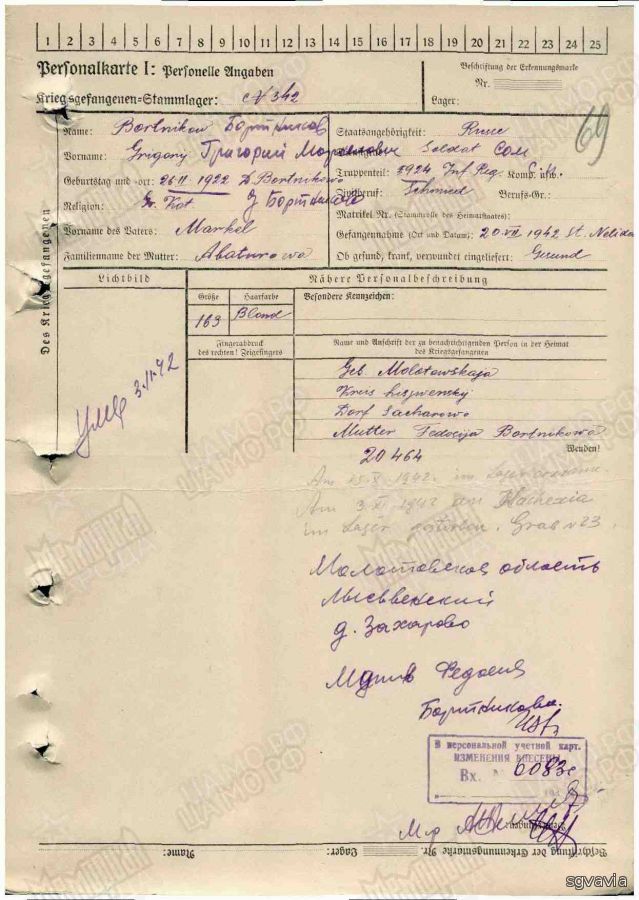 1 2 3 4 5 6 7 8 9 10 11 12 13 14 15 16 17 18 19 20 21 22 23 24 25
Personalkarte I: Personelle Angaben
Kriegsgefangenen-Stammlager: N 342
Beschriftung der Erkennungsmarke
Nr.
Lager:
69
Des Kriegsgefangenen
Name: Bortnikow Бортников
Vorname: Grigorij Григорий
Geburtstag und -ort: 26 II 1922 D. Bortnikowo
Religion: Gr. Kat. д Бортниково
Vorname des Vaters: Markel
Familienname der Mutter: Abaturowa
Staatsangehörigkeit: Russe
Soldat Сол
Truppenteil: 3924 Inf. Reg. Komp. usw.:
Zivilberuf: Schmied Berufs-Gr.:
Matrikel Nr. (Stammrolle des Heimatstaates):
Gefangennahme (Ort und Datum): 20 VII 1942 St. Nelidowo
Ob gesund, krank, verwundet eingeliefert: Gesund
Lichtbild
Nähere Personalbeschreibung
Größe
Haarfarbe
Besondere Kennzeichen:
163
Blond
Fingerabdruck
des rechten! Zeigefingers
Name und Anschrift der zu benachrichtigenden Person in der Heimat
des Kriegsgefangenen
Geb. Molotowskaja
Kreis
Dorf Sacharowo
Mutter Fedosija Bortnikowa
Wenden!
умер 3.11.42
20464
Am 25.X.1942. im Lager
Am 3.XI.1942 an Kachexia
im Lager gestorben. Grab N 23.
Молотовская область
Лысьвенский
д. Захарово
Мать Федосия
Бортникова
В персональной учетной карт.
ИЗМЕНЕНИЯ ВНЕСЕНЫ
Вх. № 6083с
194
М-р
Beschriftung der Erkennungsmarke Nr.
Lager:
Name:
ЦАМО.РФ
sgvavia